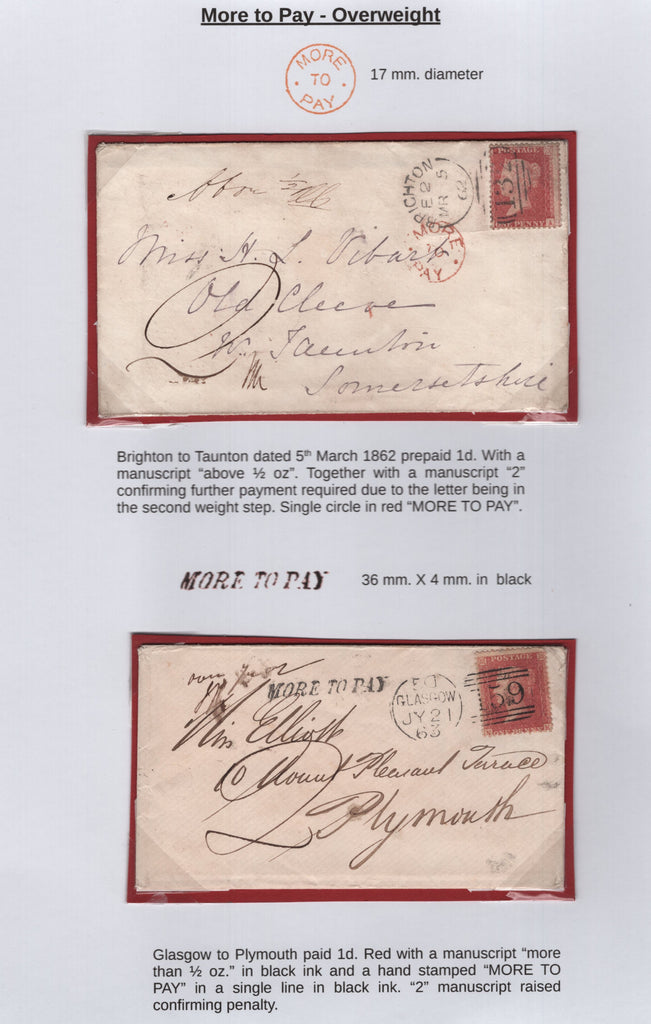 More to Pay - Overweight
MORE
TO
PAY
17 mm. diameter
Above ½ oz
BRIGHTON
E 2
MR 5
62
132
POSTAGE
ONE PENNY
MORE
TO
PAY
Miss H. S. Vibart
Old Cleeve
2
Taunton
Somersetshire
Brighton to Taunton dated 5th March 1862 prepaid 1d. With a
manuscript “above ½ oz”. Together with a manuscript “2”
confirming further payment required due to the letter being in
the second weight step. Single circle in red “MORE TO PAY”.
MORE TO PAY
36 mm. X 4 mm. in black
MORE TO PAY
GLASGOW
JY 21
63
POSTAGE
159
Miss Elliott
Mount Pleasant Terrace
2
Plymouth
Glasgow to Plymouth paid 1d. Red with a manuscript “more
than ½ oz.” in black ink and a hand stamped “MORE TO
PAY” in a single line in black ink. “2” manuscript raised
confirming penalty.